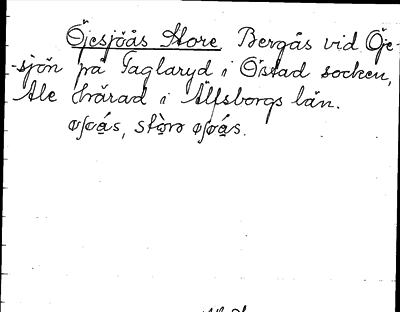 Öjesjöås Store Bergås vid Öje-
-sjön på Gaglaryd i Östad socken,
Ale härad i Älfsborgs län.